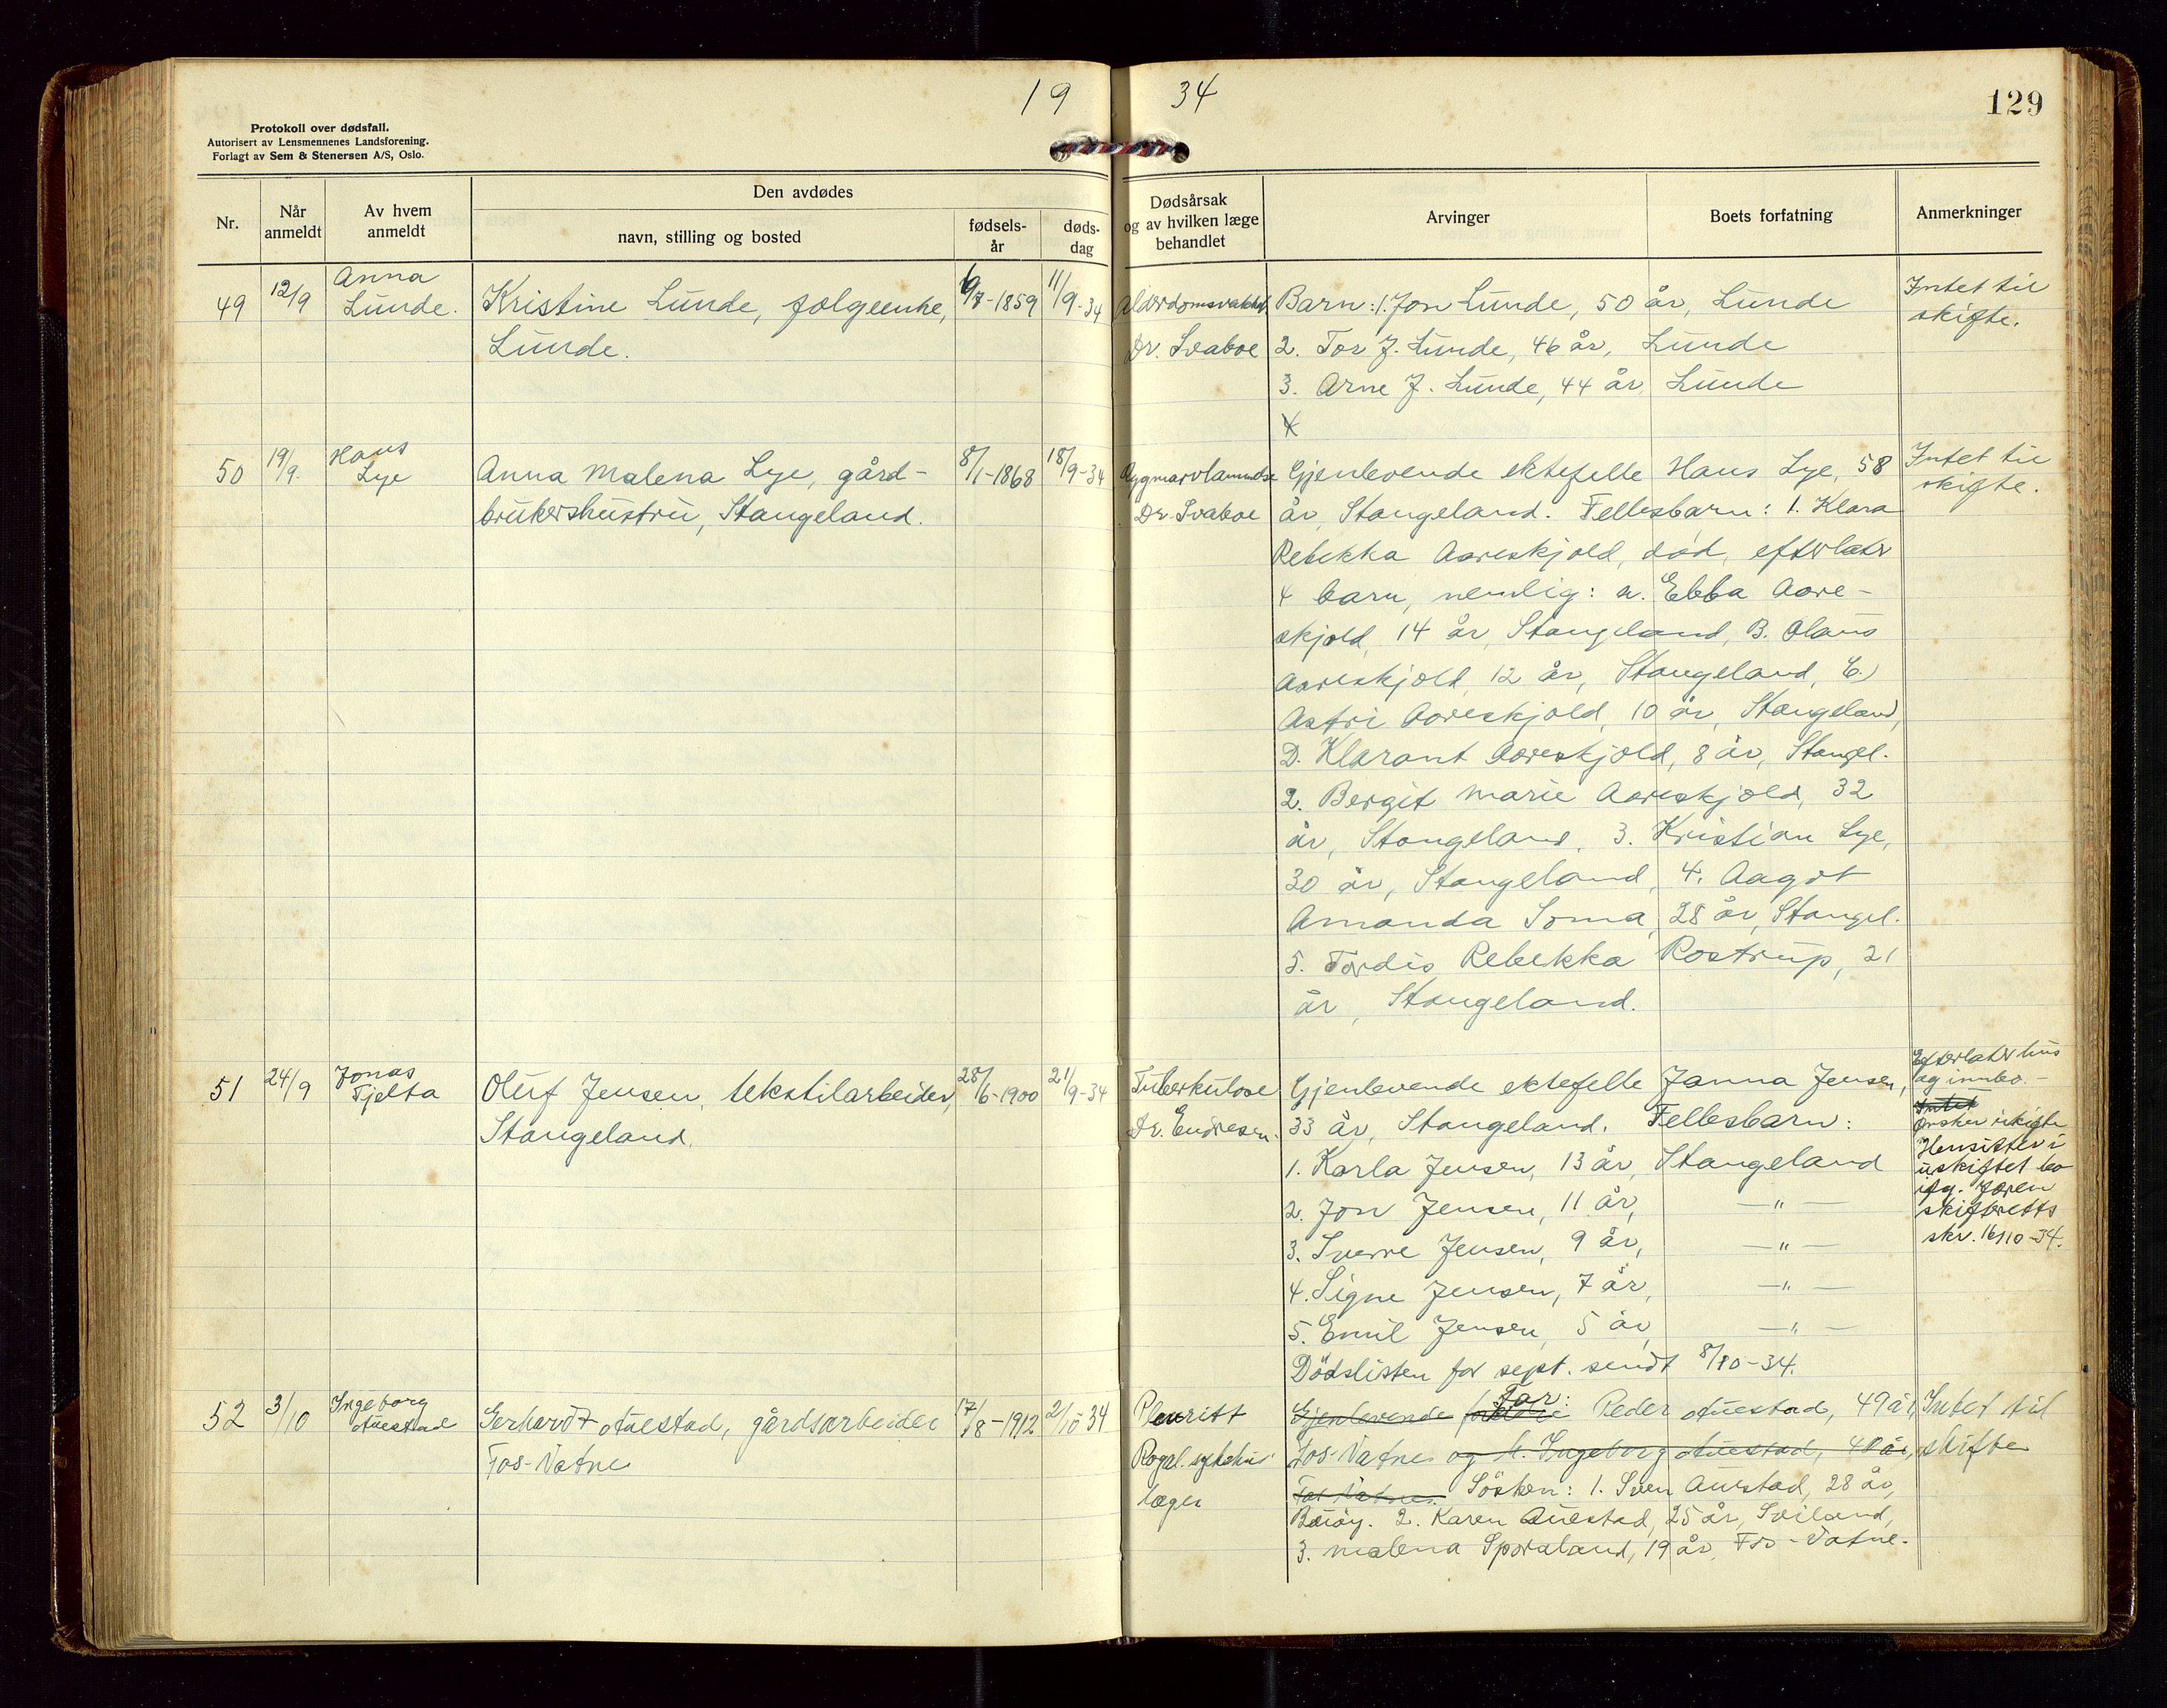 19 34
129
Protokoll over dødsfall.
Autorisert av Lensmennenes Landsforening.
Forlagt av Sem & Stenersen A/S, Oslo.
Nr.
Når anmeldt
Av hvem anmeldt
Den avdødes
navn, stilling og bosted
fødsels-år
døds-dag
Dødsårsak og av hvilken læge behandlet
Arvinger
Boets forfatning
Anmerkninger
49 12/9 Anna Lunde. Kristine Lunde, følgeenke, 6/7-1859 11/9-34
Lunde.
Alderdomsvakhet
Dr. Svaboe
Barn: 1. Jon Lunde, 50 år, Lunde
2. Tor J. Lunde, 46 år, Lunde
3. Arne J. Lunde, 44 år, Lunde
Intet til
skifte.
50 19/9. Hans Lye Anna Malena Lye, gård- 8/1-1868 18/9-34
brukershustru, Stangeland.
Rygmarvlammelse
Dr. Svaboe
Gjenlevende ektefelle Hans Lye, 58
år, Stangeland. Fellesbarn: 1. Klara
Rebekka Aareskjold, død, efterlater
4 barn, nemlig: a. Ebba Aare-
skjold, 14 år, Stangeland, B. Olaus
Aareskjold, 12 år, Stangeland, C.
Astri Aareskjold, 10 år, Stangeland,
D. Klarant Aareskjold, 8 år, Stangel.
2. Bergit Marie Aareskjold, 32
år, Stangeland, 3. Kristian Lye,
30 år, Stangeland, 4. Aagot
Amanda Soma, 28 år, Stangel.
5. Tordis Rebekka Rostrup, 21
år, Stangeland.
Intet til
skifte.
51 24/9 Jonas Tjelta Oluf Jensen, tekstilarbeider, 28/6-1900 21/9-34
Stangeland.
Tuberkulose
Dr. Endresen.
Gjenlevende ektefelle Janna Jensen,
33 år, Stangeland. Fellesbarn:
1. Karla Jensen, 13 år, Stangeland
2. Jon Jensen, 11 år, —"—
3. Sverre Jensen, 9 år, —"—
4. Signe Jensen, 7 år, —"—
5. Emil Jensen, 5 år, —"—
Dödslisten for sept. sendt 8/10-34.
Efterlater hus
og innbo.-
Intet
Ønsker skifte
Hensitter i
uskiftet bo
ifg. Jæren
skifteretts
skr. 16/10-34.
52 3/10 Ingeborg Auestad Gerhardt Auestad, gårdsarbeider 17/8-1912 2/10 34
Fos-Vatne
Pleuritt
Rogal. sykehus
læger
Far:
Gjenlevende foreldre Peder Auestad, 49 år,
Fos-Vatne og h. Ingeborg Auestad, 40 år,
Fos-Vatne. Søsken: 1. Sven Auestad, 28 år,
Buøy. 2. Karen Auestad, 25 år, Sviland,
3. Malena Sporaland, 19 år, Fos-Vatne.
Intet til
skifte